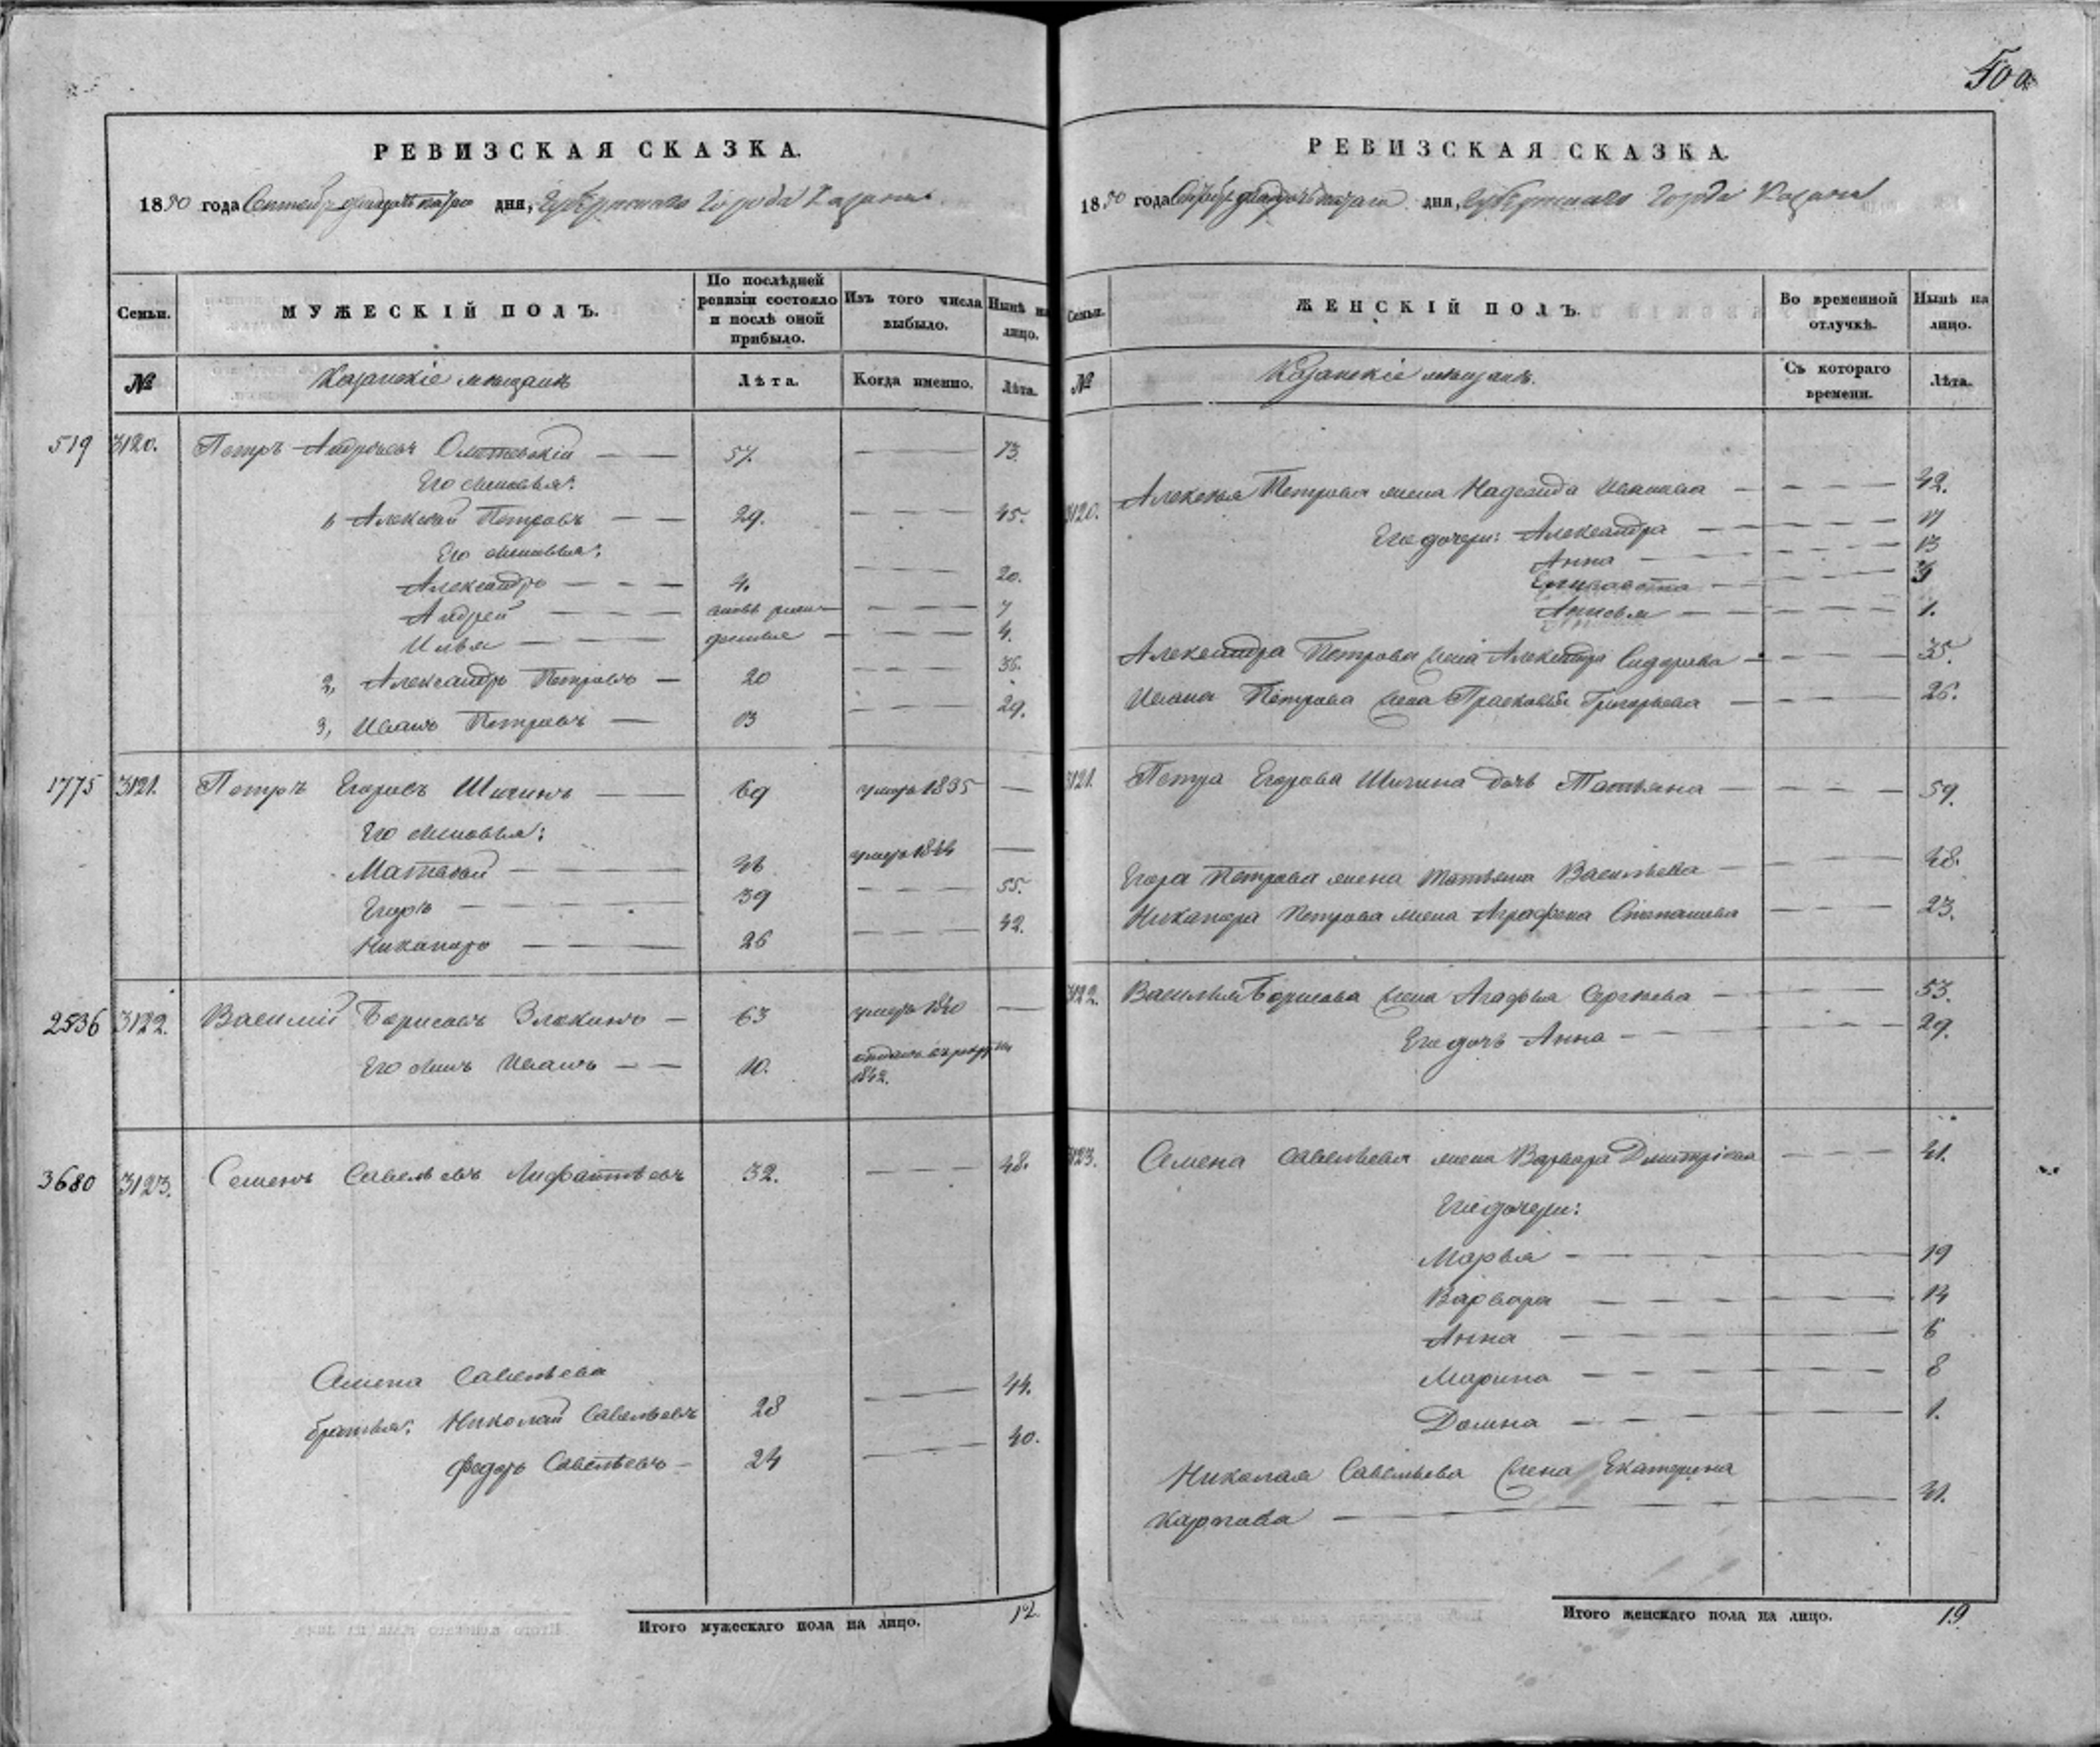 50 а
РЕВИЗСКАЯ СКАЗКА.
1850 года Сентября дня, Губернскаго Города Казани
Семьи.
МУЖЕСКІЙ ПОЛЪ.
По послѣдней ревизіи состояло и послѣ оной прибыло.
Изъ того числа выбыло.
Нынѣ на лицо.
№
Казанскіе мещане
Лѣта.
Когда именно.
Лѣта.
519 3120. Петръ Андреевъ — — 57. — — 73.
Его сыновья:
1, Алексѣй Петровъ — — 29. — — — 45.
Его сыновья:
Александръ — — — 4. — — — 20.
Андрей — — — вновь рож — — — 7
Илья — — — денные — — — 4.
2, Александръ Петровъ — 20 — — — 36.
3, Иванъ Петровъ — 13 — — — 29.
1775 3121. Петръ Егоровъ Шигинъ — — 69 умеръ 1835 —
Его сыновья:
Матвѣй — — — 46 умеръ 1844 —
Егоръ — — — 39 — — — 55.
Никаноръ — — — 26 — — — 42.
2536 3122. Василій Борисовъ Элекинъ — 63 умеръ 1840 —
Его сынъ Иванъ — — 10. отданъ въ рекруты 1842.
3680 3123. Семенъ Савельевъ 32. — — — 48.
Семена Савельева
братья: Николай Савельевъ 28 — — — 44.
Федоръ Савельевъ — 24 — — — 40.
Итого мужескаго пола на лицо. 12.
РЕВИЗСКАЯ СКАЗКА.
1850 года дня, Губернскаго Города Казани
Семьи.
ЖЕНСКІЙ ПОЛЪ.
Во временной отлучкѣ.
Нынѣ на лицо.
№
Казанскіе мещане.
Съ котораго времени.
Лѣта.
3120. Алексѣя Петрова жена Надежда Иванова — — — — 42.
Его дочери: Александра — — — — 17
Анна — — — — 13
Елизавета — — — —
— — — — 1.
Александра Петрова жена Александра Сидорова — — — — 35.
Ивана Петрова жена Прасковья Григорьева — — — — 26.
3121. Петра Егорова Шигина дочь Татьяна — — — — 59.
Егора Петрова жена Татьяна Васильева — — — — 48.
Никанора Петрова жена Аграфена Степанова — — — 23.
3122. Василья Борисова жена Агафья Сергеева — — — — 53.
Его дочь Анна — — — — 29.
3123. Семена Савельева жена Варвара Дмитріева — — — 41.
Его дочери:
Марья — — — — 19
Варвара — — — — 14
Анна — — — — 6
Марина — — — — 8
Домна — — — — 1.
Николая Савельева жена Екатерина
Карпова — — — — 41.
Итого женскаго пола на лицо. 19.